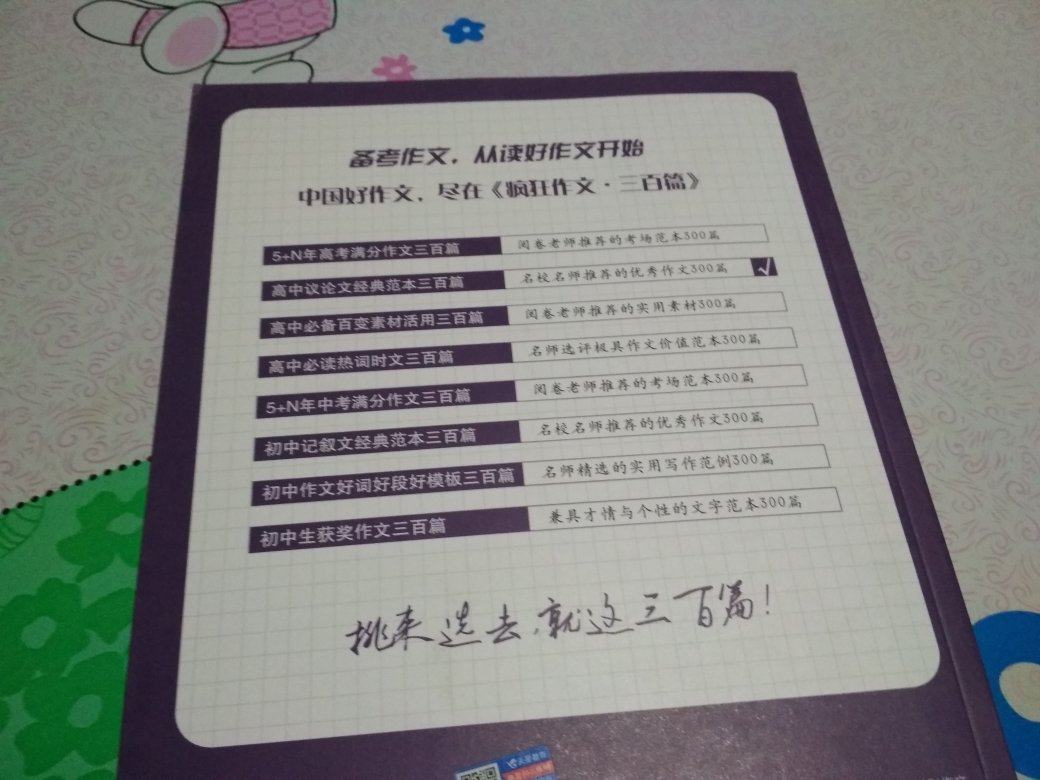 备考作文，从读好作文开始
中国好作文，尽在《疯狂作文·三百篇》
5+N年高考满分作文三百篇 阅卷老师推荐的考场范本300篇
高中议论文经典范本三百篇 名校名师推荐的优秀作文300篇
高中必备百变素材活用三百篇 阅卷老师推荐的实用素材300篇
高中必读热词时文三百篇 名师选评极具作文价值范本300篇
5+N年中考满分作文三百篇 阅卷老师推荐的考场范本300篇
初中记叙文经典范本三百篇 名校名师推荐的优秀作文300篇
初中作文好词好段好模板三百篇 名师精选的实用写作范例300篇
初中生获奖作文三百篇 兼具才情与个性的文字范本300篇
挑来选去，就这三百篇！
天星教育